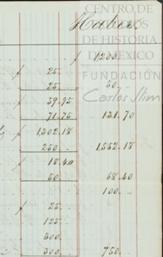 CENTRO DE
ESTUDIOS
DE HISTORIA
DE MÉXICO
FUNDACIÓN
Carlos Slim
Haber
1200.
25.
25. 50.
59.95
71.75 131.70
1302.18
250. 1552.18
18.40
50. 68.40
100.
25.
125.
300.
300. 750.